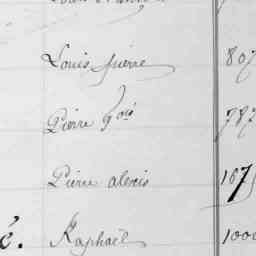 Louis pierre 807
Pierre 787
Pierre alexis 107
é. Raphaël 1000